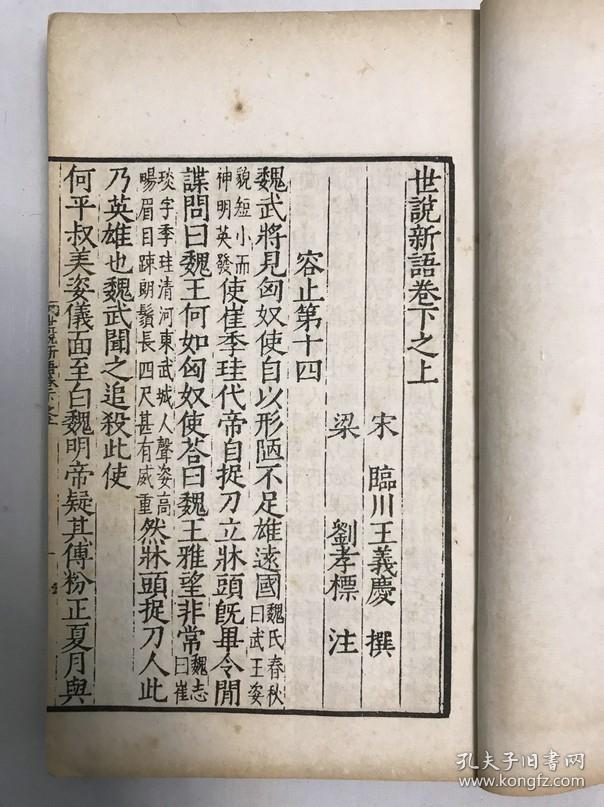 世說新語卷下之上
宋 臨川王義慶 撰
梁 劉孝標 注
容止第十四
魏武將見匈奴使自以形陋不足雄遠國魏氏春秋曰武王姿
貌短小而神明英發使崔季珪代帝自捉刀立牀頭旣畢令閒
諜問曰魏王何如匈奴使荅曰魏王雅望非常魏志曰崔
琰字季珪清河東武城人聲姿高暢眉目踈朗鬚長四尺甚有威重然牀頭捉刀人此
乃英雄也魏武聞之追殺此使
何平叔美姿儀面至白魏明帝疑其傅粉正夏月與
孔夫子旧书网
www.kongfz.com